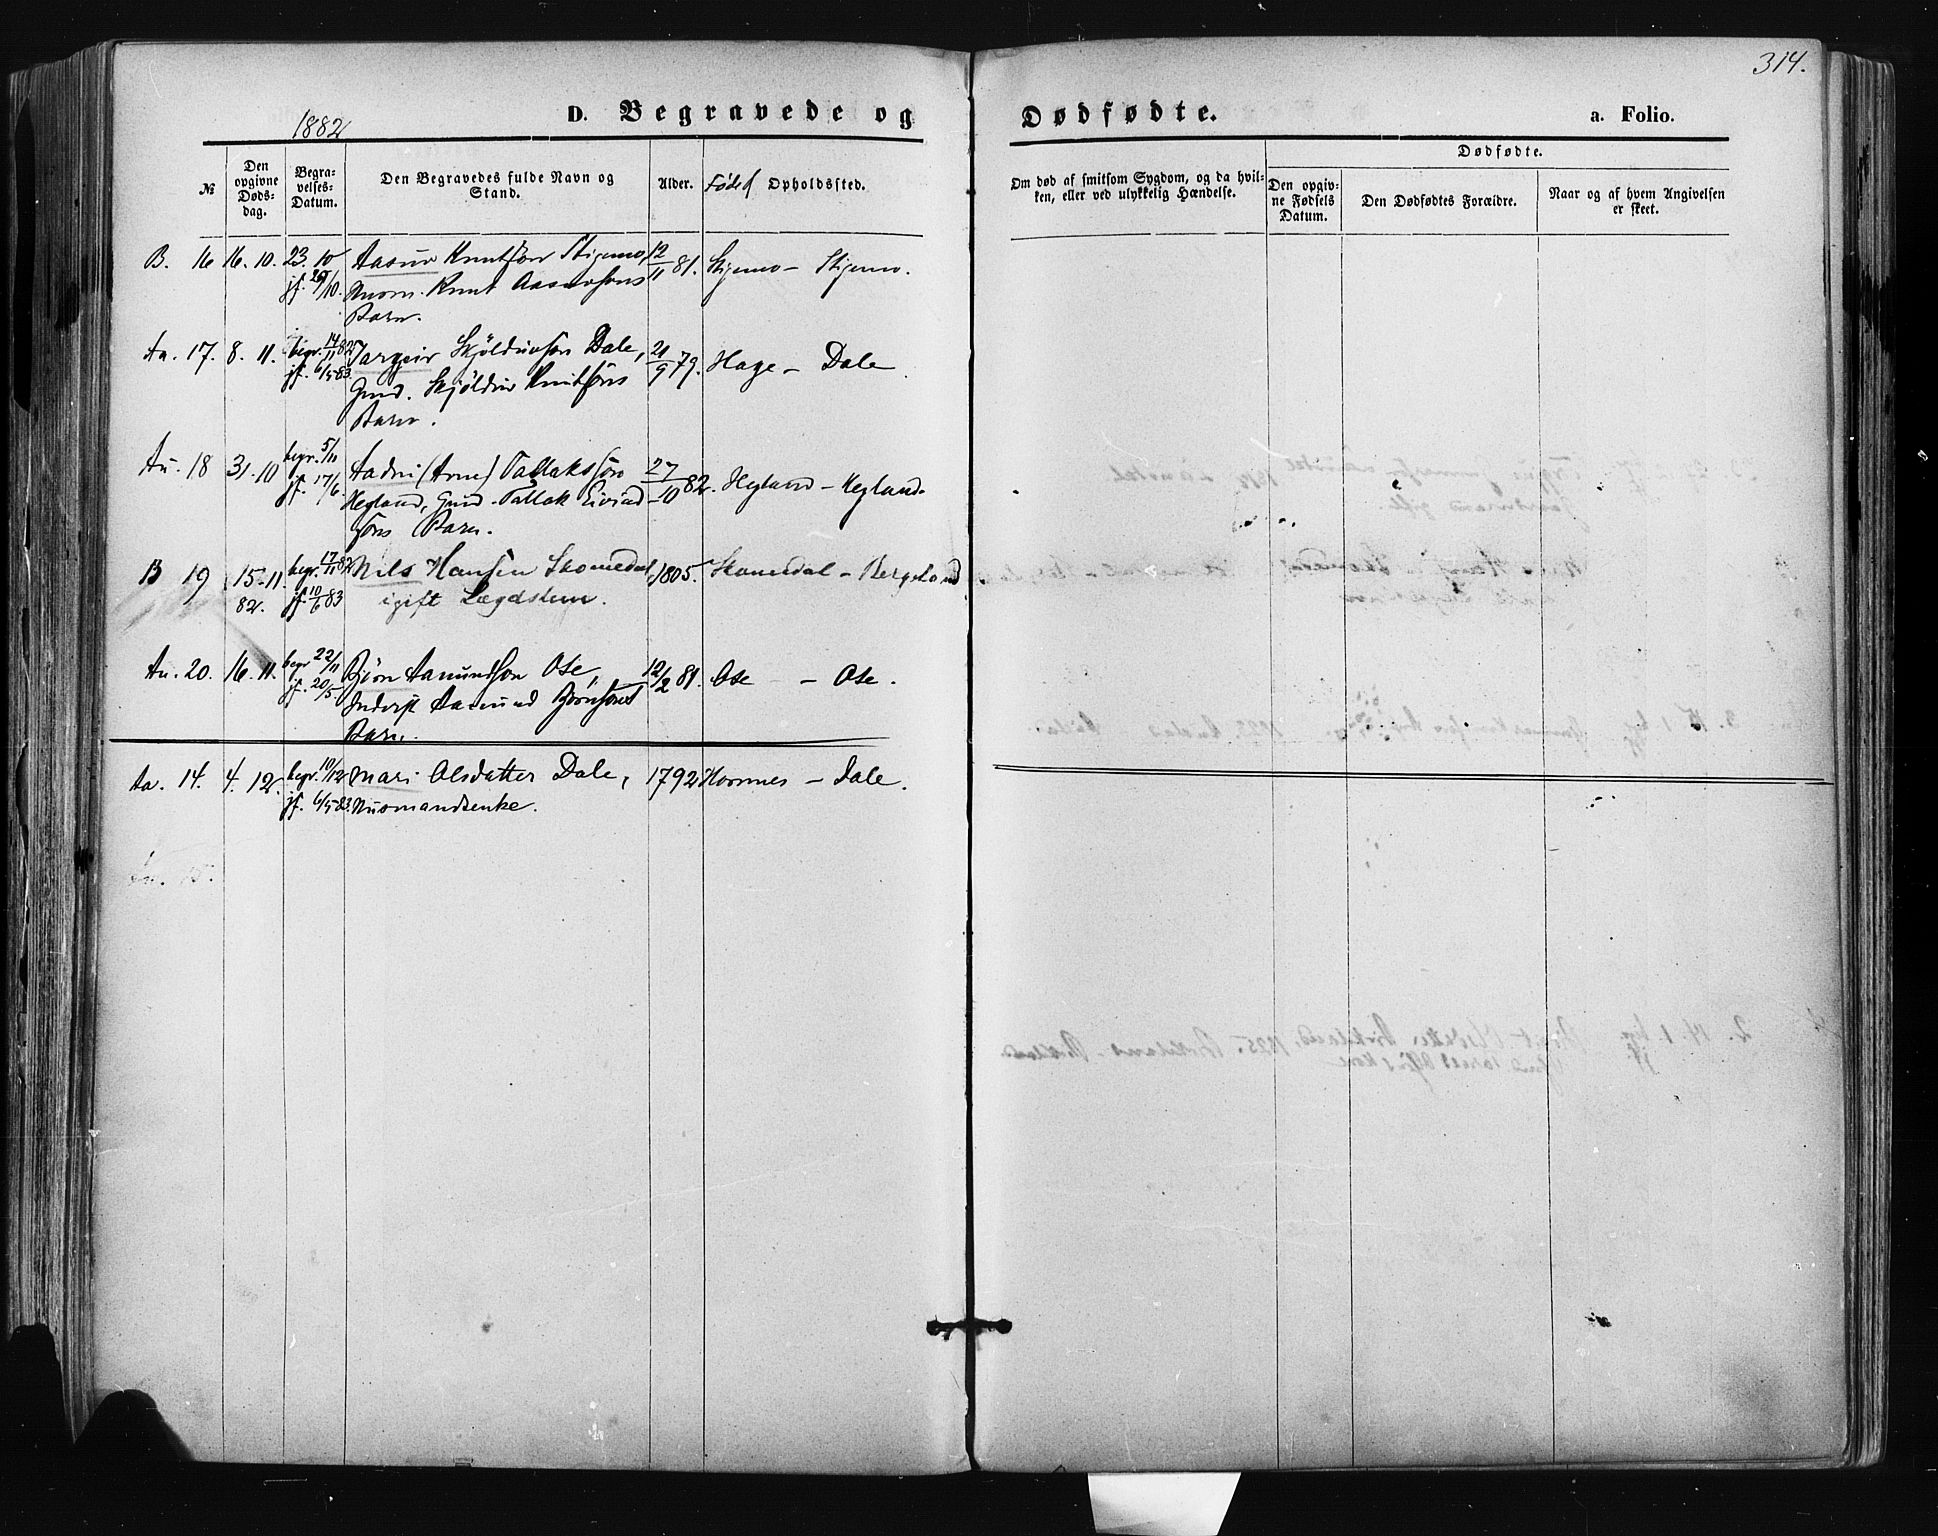 314.
1882
D. Begravede og Dødfødte. a. Folio.
№
Den opgivne Døds-dag.
Begra-velses-Datum.
Den Begravedes fulde Navn og Stand.
Alder.
Føde/ Opholdssted.
Om død af smitsom Sygdom, og da hvil-ken, eller ved ulykkelig Hændelse.
Dødfødte.
Den opgiv-ne Fødsels Datum.
Den Dødfødtes Forældre.
Naar og af hvem Angivelsen er skeet.
B. 16 16. 10. 23. 10 Aasuv Knutsøn Stigemo, 12/11 81. Stigemo - Stigemo.
Knut
Barn.
Aa. 17. 8. 11. begr. 14/11 82 Targeir Skjöldulvsøn Dale, 21/9 79. Hage - Dale
jf. 6/5 83 Gmd. Skjöldulv Knutsøns
Barn.
Au. 18 31. 10 begr. 5/11 Aadni (Arne) Tallakssøn 27/10 82. Heyland - Heyland.
jf. 17/6. Heyland, Gmd. Tallak Eivind-
søns Barn.
B 19 15-11 begr. 17/11 82 Nils Hansen Skomedal, 1805. Skomedal - Bergeland
82. jf. 10/6 83 igift Lægdslem.
Au. 20. 16. 11. begr 22/11 Bjørn Aamundsøn Ose, 12/2 81. Ose - Ose.
jf. 20/5. Inderst Aamund Bjørnsøns
Barn.
Aa. 14. 4. 12. begr. 10/12 Mari Olsdatter Dale, 1792 Hornnes - Dale.
jf. 6/5 83. Husmandsenke.
Au. 15.